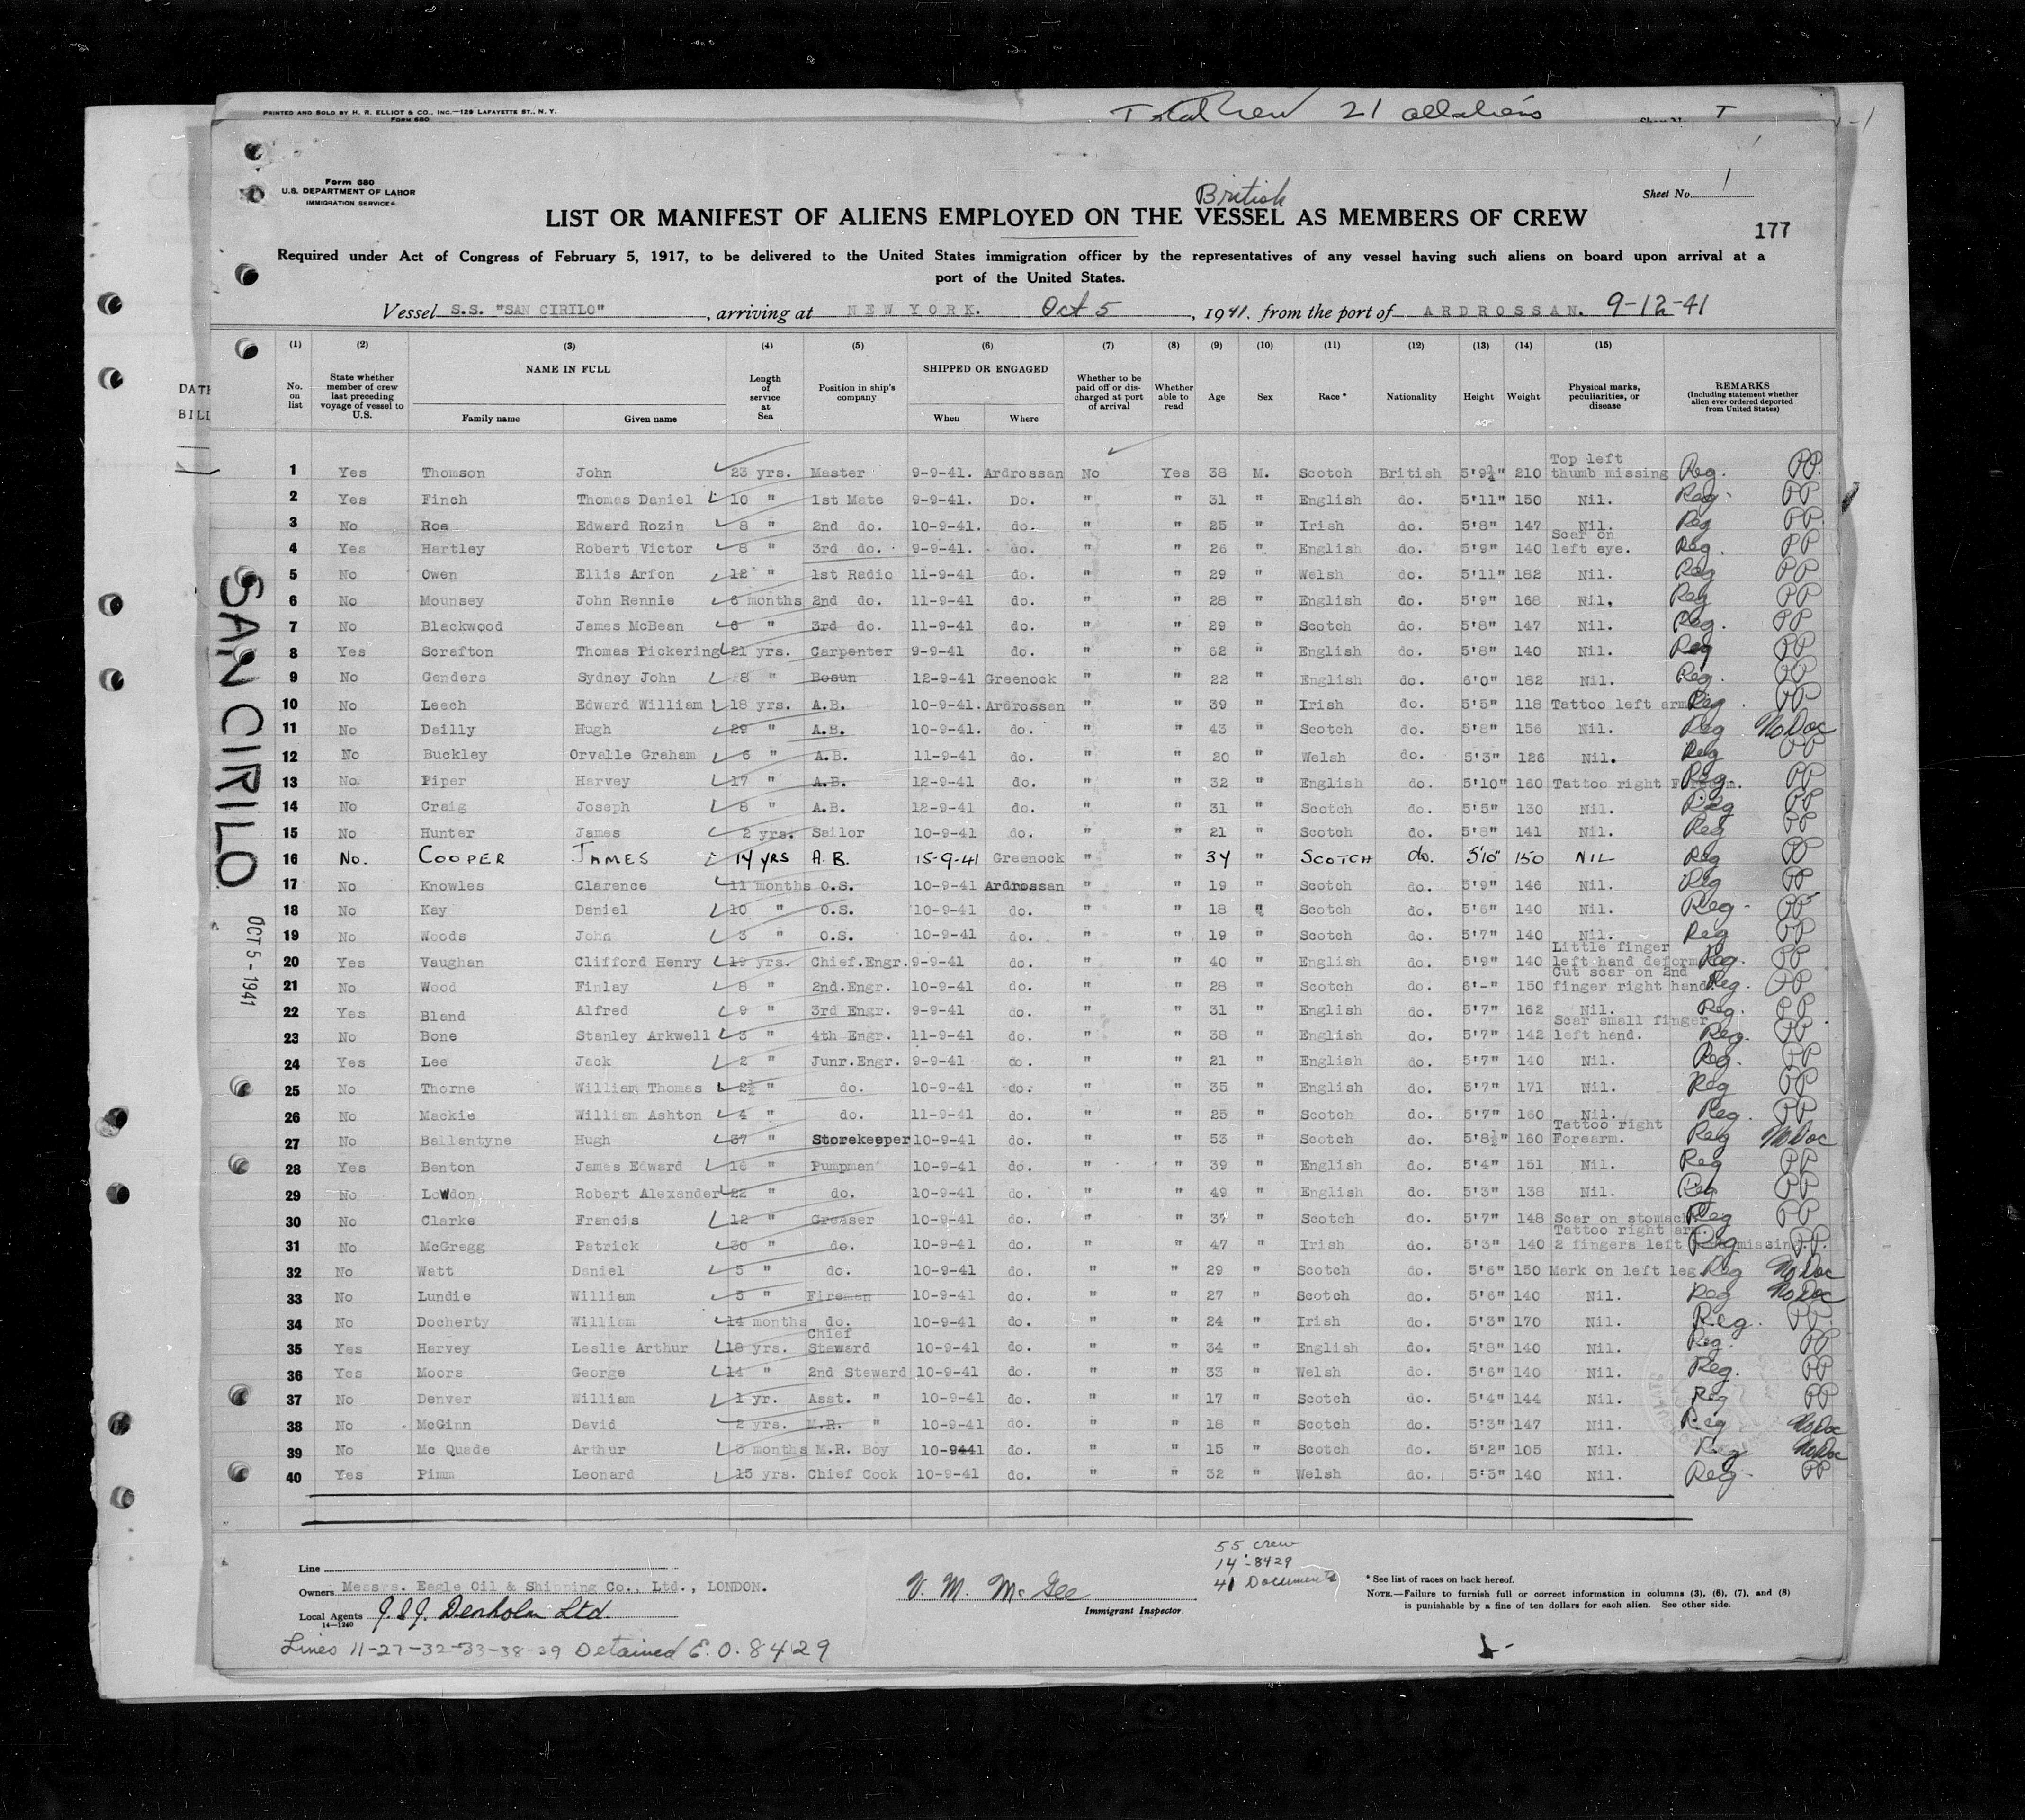 PRINTED AND SOLD BY H. R. ELLIOT & CO., INC.—129 LAFAYETTE ST., N. Y.
FORM 680
Total Crew 21 all aliens
Form 680
U.S. DEPARTMENT OF LABOR
IMMIGRATION SERVICE
Sheet No. 1
British
LIST OR MANIFEST OF ALIENS EMPLOYED ON THE VESSEL AS MEMBERS OF CREW
177
Required under Act of Congress of February 5, 1917, to be delivered to the United States immigration officer by the representatives of any vessel having such aliens on board upon arrival at a
port of the United States.
Vessel S.S. "SAN CIRILO", arriving at NEW YORK. Oct 5, 1941. from the port of ARDROSSAN. 9-12-41
(1) (2) (3) (4) (5) (6) (7) (8) (9) (10) (11) (12) (13) (14) (15)
No. on list
State whether member of crew last preceding voyage of vessel to U.S.
NAME IN FULL
Family name Given name
Length of service at Sea
Position in ship's company
SHIPPED OR ENGAGED
When Where
Whether to be paid off or discharged at port of arrival
Whether able to read
Age Sex Race * Nationality Height Weight
Physical marks, peculiarities, or disease
REMARKS
(Including statement whether alien ever ordered deported from United States)
DATE
BILL
1 Yes Thomson John 23 yrs. Master 9-9-41. Ardrossan No Yes 38 M. Scotch British 5'9¾" 210 Top left thumb missing Reg. PP.
2 Yes Finch Thomas Daniel 10 " 1st Mate 9-9-41. Do. " " 31 " English do. 5'11" 150 Nil. Reg. PP
3 No Roe Edward Rozin 8 " 2nd do. 10-9-41. do. " " 25 " Irish do. 5'8" 147 Nil. Reg PP
4 Yes Hartley Robert Victor 8 " 3rd do. 9-9-41. do. " " 26 " English do. 5'9" 140 Scar on left eye. Reg. PP
5 No Owen Ellis Arfon 12 " 1st Radio 11-9-41 do. " " 29 " Welsh do. 5'11" 182 Nil. Reg PP
6 No Mounsey John Rennie 6 months 2nd do. 11-9-41 do. " " 28 " English do. 5'9" 168 Nil. Reg PP
7 No Blackwood James McBean 6 " 3rd do. 11-9-41 do. " " 29 " Scotch do. 5'8" 147 Nil. Reg. PP
8 Yes Scrafton Thomas Pickering 21 yrs. Carpenter 9-9-41 do. " " 62 " English do. 5'8" 140 Nil. Reg PP
9 No Genders Sydney John 8 " Bosun 12-9-41 Greenock " " 22 " English do. 6'0" 182 Nil. Reg. PP
10 No Leech Edward William 18 yrs. A.B. 10-9-41. Ardrossan " " 39 " Irish do. 5'5" 118 Tattoo left arm Reg. PP
11 No Dailly Hugh 29 " A.B. 10-9-41. do. " " 43 " Scotch do. 5'8" 156 Nil. Reg No Doc
12 No Buckley Orvalle Graham 6 " A.B. 11-9-41 do. " " 20 " Welsh do. 5'3" 126 Nil. Reg PP
13 No Piper Harvey 17 " A.B. 12-9-41 do. " " 32 " English do. 5'10" 160 Tattoo right Forearm. Reg. PP
14 No Craig Joseph 8 " A.B. 12-9-41 do. " " 31 " Scotch do. 5'5" 130 Nil. Reg PP
15 No Hunter James 2 yrs. Sailor 10-9-41 do. " " 21 " Scotch do. 5'8" 141 Nil. Reg PP
16 No. COOPER JAMES 14 YRS A.B. 15-9-41 Greenock " " 34 " SCOTCH do. 5'10" 150 NIL Reg PP
17 No Knowles Clarence 11 months O.S. 10-9-41 Ardrossan " " 19 " Scotch do. 5'9" 146 Nil. Reg PP
18 No Kay Daniel 10 " O.S. 10-9-41 do. " " 18 " Scotch do. 5'6" 140 Nil. Reg. PP
19 No Woods John 3 " O.S. 10-9-41 do. " " 19 " Scotch do. 5'7" 140 Nil. Reg PP
20 Yes Vaughan Clifford Henry 19 yrs. Chief.Engr. 9-9-41 do. " " 40 " English do. 5'9" 140 Little finger left hand deform Reg. PP
21 No Wood Finlay 8 " 2nd.Engr. 10-9-41 do. " " 28 " Scotch do. 6'-" 150 Cut scar on 2nd finger right hand Reg. PP
22 Yes Bland Alfred 9 " 3rd Engr. 9-9-41 do. " " 31 " English do. 5'7" 162 Nil. Reg. PP
23 No Bone Stanley Arkwell 3 " 4th Engr. 11-9-41 do. " " 38 " English do. 5'7" 142 Scar small finger left hand. Reg. PP
24 Yes Lee Jack 2 " Junr.Engr. 9-9-41 do. " " 21 " English do. 5'7" 140 Nil. Reg. PP
25 No Thorne William Thomas 2½ " do. 10-9-41 do. " " 35 " English do. 5'7" 171 Nil. Reg PP
26 No Mackie William Ashton 4 " do. 11-9-41 do. " " 25 " Scotch do. 5'7" 160 Nil. Reg. PP
27 No Ballantyne Hugh 37 " Storekeeper 10-9-41 do. " " 53 " Scotch do. 5'8½" 160 Tattoo right Forearm. Reg No Doc
28 Yes Benton James Edward 16 " Pumpman 10-9-41 do. " " 39 " English do. 5'4" 151 Nil. Reg PP
29 No Lowdon Robert Alexander 22 " do. 10-9-41 do. " " 49 " English do. 5'3" 138 Nil. Reg PP
30 No Clarke Francis 12 " Greaser 10-9-41 do. " " 37 " Scotch do. 5'7" 148 Scar on stomach Reg PP
31 No McGregg Patrick 30 " do. 10-9-41 do. " " 47 " Irish do. 5'3" 140 Tattoo right arm. 2 fingers left missing. Reg PP.
32 No Watt Daniel 5 " do. 10-9-41 do. " " 29 " Scotch do. 5'6" 150 Mark on left leg. Reg No Doc
33 No Lundie William 5 " Fireman 10-9-41 do. " " 27 " Scotch do. 5'6" 140 Nil. Reg No Doc
34 No Docherty William 14 months do. 10-9-41 do. " " 24 " Irish do. 5'3" 170 Nil. Reg. PP
35 Yes Harvey Leslie Arthur 18 yrs. Chief Steward 10-9-41 do. " " 34 " English do. 5'8" 140 Nil. Reg. PP
36 Yes Moors George 14 " 2nd Steward 10-9-41 do. " " 33 " Welsh do. 5'6" 140 Nil. Reg. PP
37 No Denver William 1 yr. Asst. " 10-9-41 do. " " 17 " Scotch do. 5'4" 144 Nil. Reg PP
38 No McGinn David 2 yrs. M.R. " 10-9-41 do. " " 18 " Scotch do. 5'3" 147 Nil. Reg No Doc
39 No Mc Quade Arthur 3 months M.R. Boy 10-9441 do. " " 15 " Scotch do. 5'2" 105 Nil. Reg No Doc
40 Yes Pimm Leonard 15 yrs. Chief Cook 10-9-41 do. " " 32 " Welsh do. 5'3" 140 Nil. Reg. PP
SAN CIRILO
OCT 5 - 1941
Line
Owners Messrs. Eagle Oil & Shipping Co., Ltd., LONDON.
Local Agents J. & J. Denholm Ltd.
14—1240
V. M. McGee
Immigrant Inspector
55 crew
14 - 8429
41 Documents
* See list of races on back hereof.
NOTE.—Failure to furnish full or correct information in columns (3), (6), (7), and (8)
is punishable by a fine of ten dollars for each alien. See other side.
Lines 11-27-32-33-38-39 Detained E.O. 8429